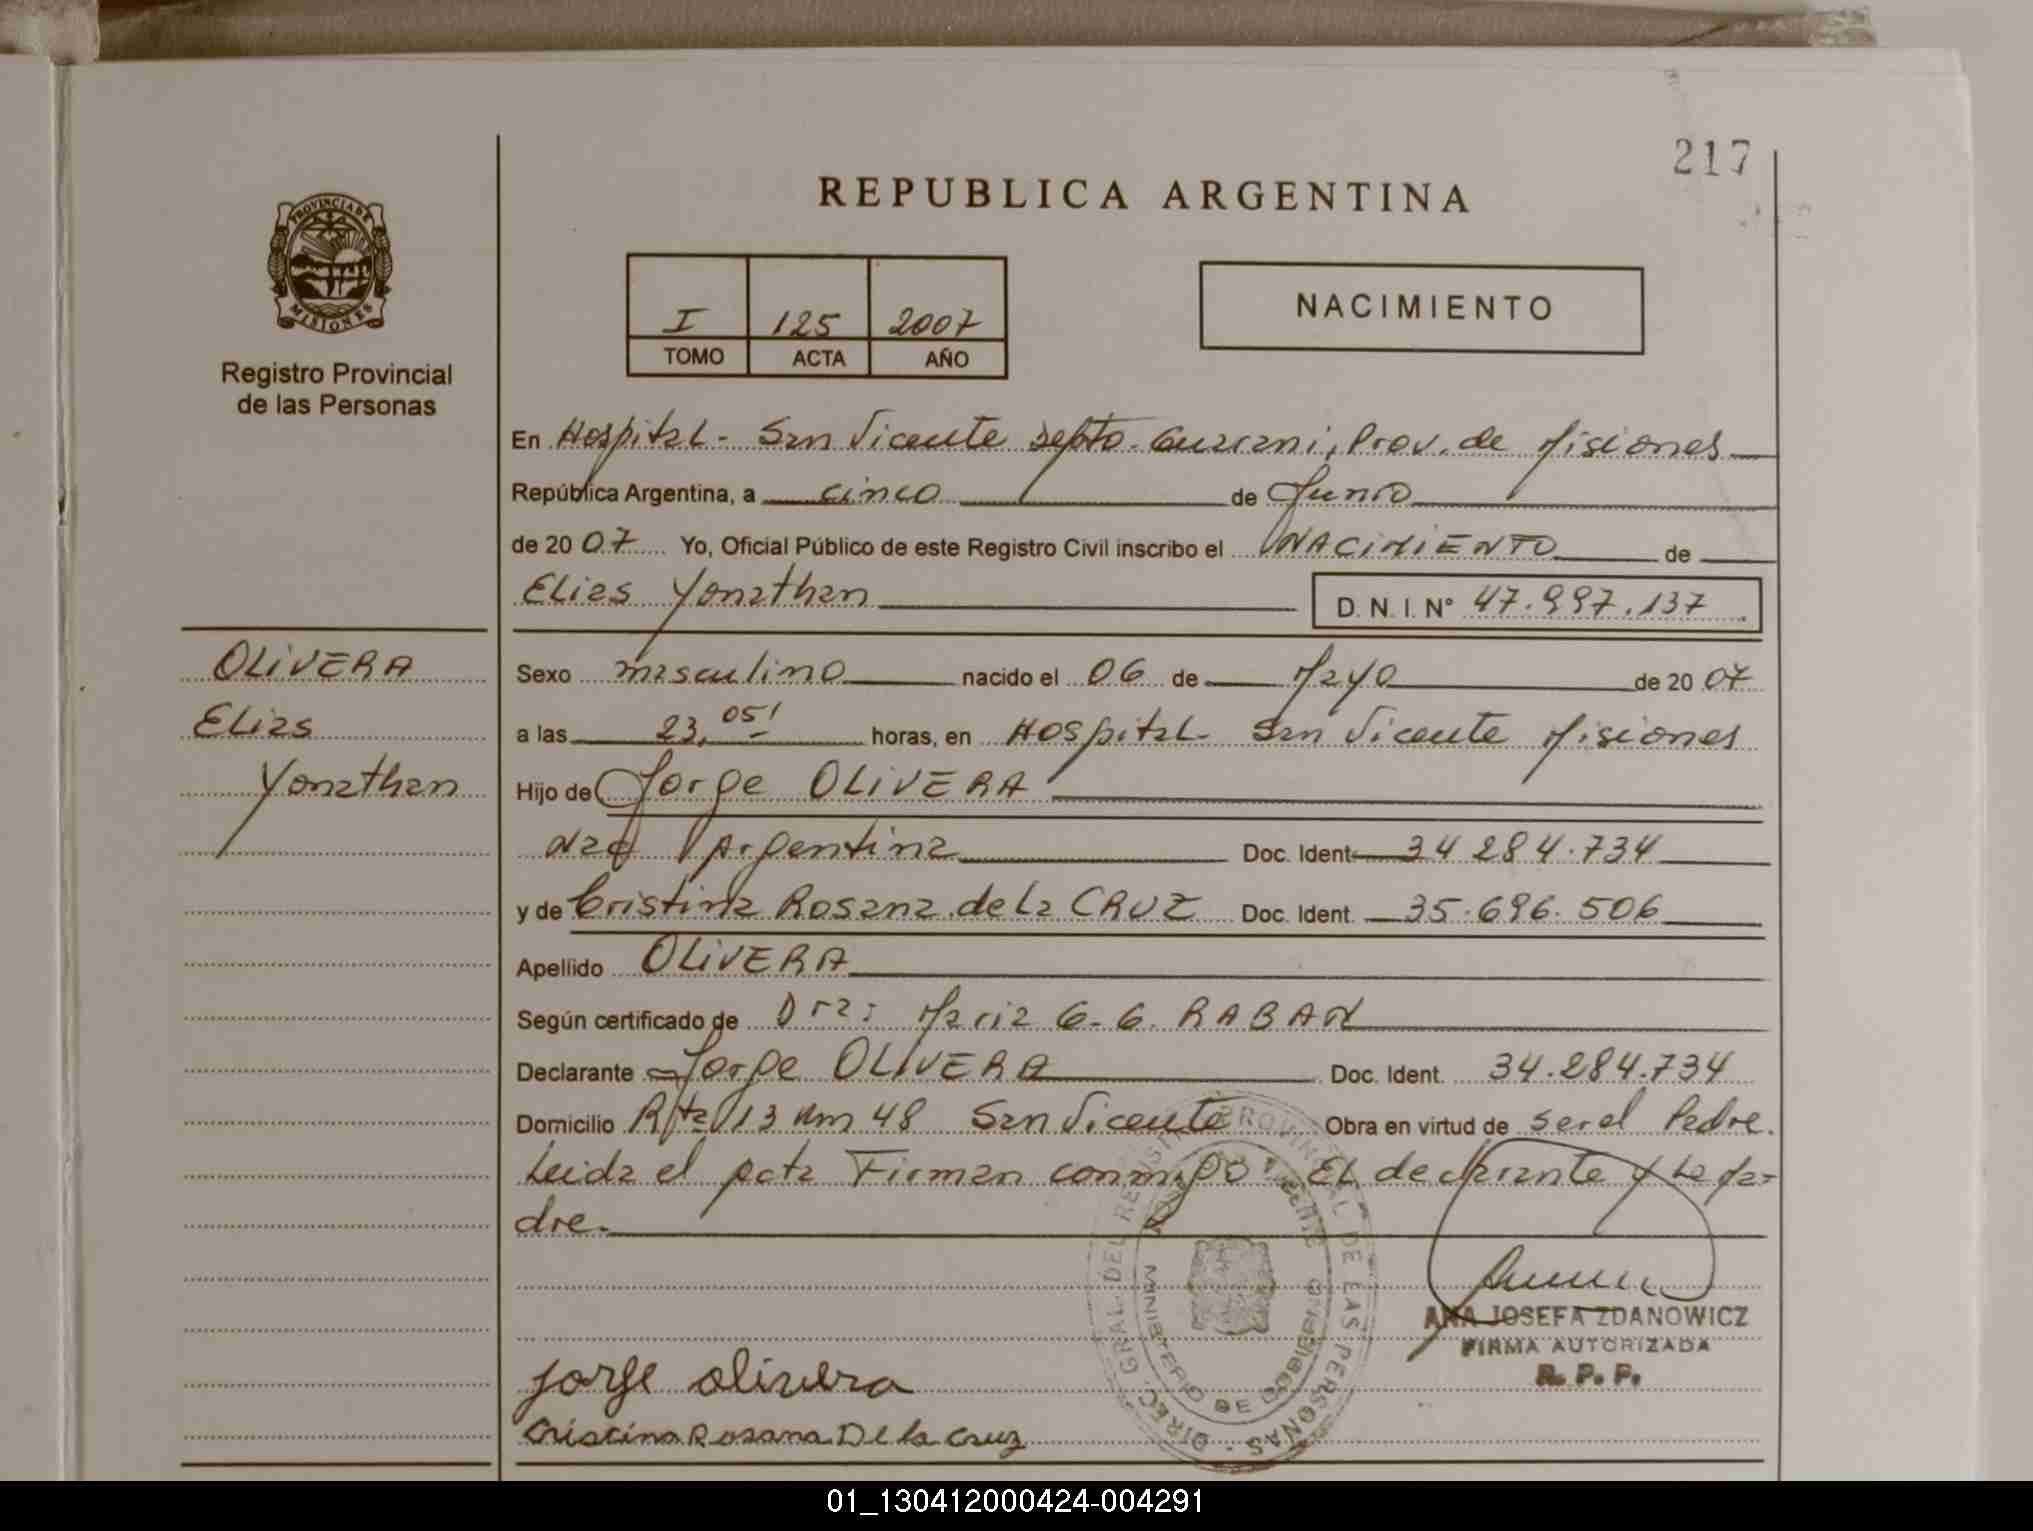 217
REPUBLICA ARGENTINA
PROVINCIA DE
MISIONES
Registro Provincial
de las Personas
I 125 2007
TOMO ACTA AÑO
NACIMIENTO
En Hospital - San Vicente Depto. Guarani, Prov. de Misiones
República Argentina, a cinco de Junio
de 20 07 Yo, Oficial Público de este Registro Civil inscribo el NACIMIENTO de
Elias Yonathan D. N. I. N° 47.997.137
OLIVERA
Elias
Yonathan
Sexo masculino nacido el 06 de Mayo de 20 07
a las 23,05' horas, en Hospital - San Vicente Misiones
Hijo de Jorge OLIVERA
Nac Argentina Doc. Ident 34 284.734
y de Cristina Rosana de la CRUZ Doc. Ident. 35.696.506
Apellido OLIVERA
Según certificado de Dra: Maria G. G. RABAN
Declarante Jorge OLIVERA Doc. Ident. 34.284.734
Domicilio Rta 13 Km 48 San Vicente Obra en virtud de ser el Padre.
Leida el acta Firman conmigo El declarante y La Ma-
dre.
DIREC. GRAL. DEL REGISTRO PROVINCIAL DE LAS PERSONAS
VICENTE
MINISTERIO DE GOBIERNO
ANA JOSEFA ZDANOWICZ
FIRMA AUTORIZADA
R. P. P.
Jorge olivera
Cristina Rosana De la Cruz
01_130412000424-004291